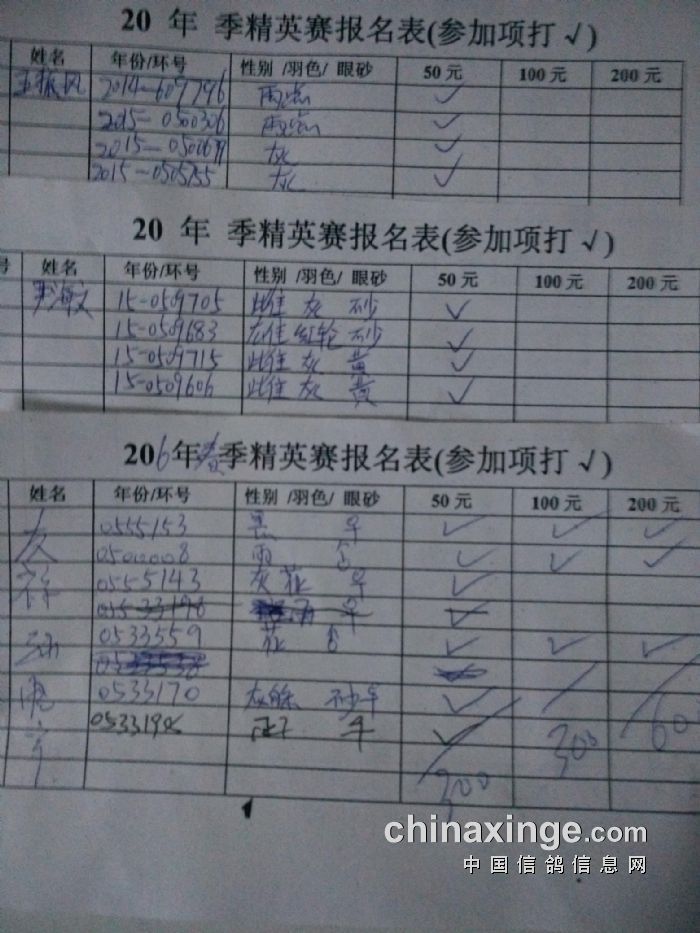 20 年 季精英赛报名表(参加项打 √)
姓名 年份/环号 性别 /羽色/ 眼砂 50 元 100 元 200 元
王振风 2014-609796 雨点 ✓
2015-0500306 雨点 ✓
2015-05006 灰 ✓
2015-0505755 灰 ✓
20 年 季精英赛报名表(参加项打 √)
号 姓名 年份/环号 性别 /羽色/ 眼砂 50 元 100 元 200 元
海文 15-0509705 雌 灰 砂 ✓
15-0509683 雄 红轮 砂 ✓
15-0509715 雌 灰 黄 ✓
15-0509606 雌 灰 黄 ✓
206年春季精英赛报名表(参加项打 √)
姓名 年份/环号 性别 /羽色/ 眼砂 50 元 100 元 200 元
友 0555153 黑 ♀ ✓ ✓ ✓
0500008 雨 ♂ ✓ ✓ ✓
祥 0555143 灰 花 ♀ ✓
0533198 ♀ ✓
0533559 花 ♂ ✓ ✓ ✓
0533170 灰 砂 ♀ ✓
0533190 ♀ ✓
300 300 60
chinaxinge.com
中国信鸽信息网